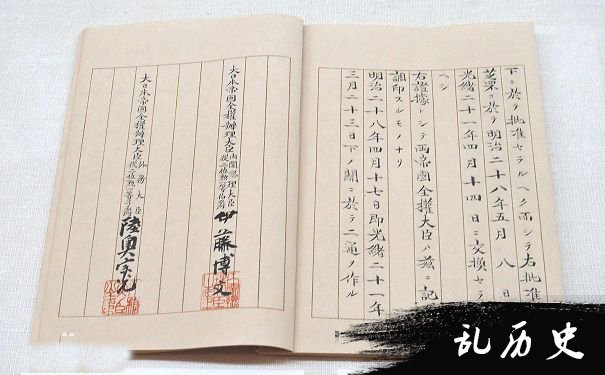 下ニ於テ批准セラルヘク而シテ右批准
芝罘ニ於テ明治二十八年五月八日
光緒二十一年四月十四日ニ交換セラ
ヘシ
右證據トシテ兩帝國全權大臣ハ茲ニ記
調印スルモノナリ
明治二十八年四月十七日即光緒二十一年
三月二十三日下ノ關ニ於テ二通ヲ作ル
大日本帝國全權辦理大臣
內閣總理大臣
從二位勲一等伯爵
伊藤博文
大日本帝國全權辦理大臣
外務大臣
從二位勲一等子爵
陸奥宗光
乱历史